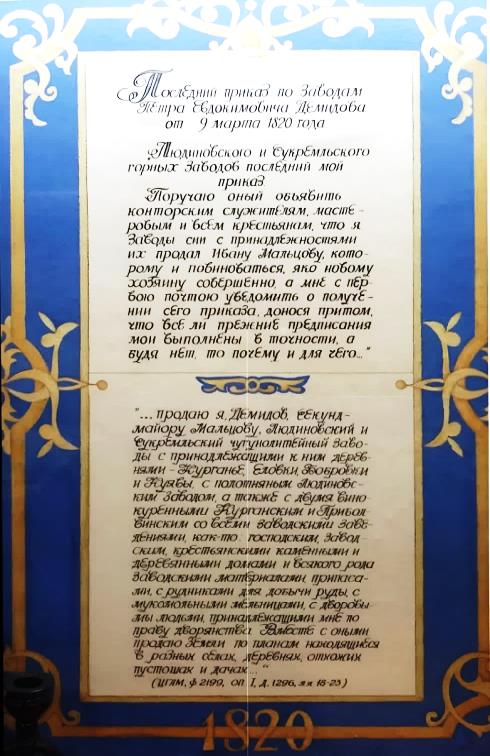 Последний приказ по заводам
Петра Евдокимовича Демидова
от 9 марта 1820 года
„Людиновского и Сукремльского
горных заводов последний мой
приказ
Поручаю оный объявить
конторским служителям, масте-
ровым и всем крестьянам, что я
Заводы сии с принадлежностями
их продал Ивану Мальцову, кото-
рому и повиноваться, яко новому
хозяину совершенно, а мне с пер-
вою почтою уведомить о получе-
нии сего приказа, донося притом,
что все ли прежние предписания
мои выполнены в точности, а
будя нет, то почему и для чего..."
"... продаю я, Демидов, секунд-
майору Мальцову, Людиновский и
Сукремльский чугунолитейный заво-
ды с принадлежащими к ним дерев-
нями - Курганье, Еловки, Бобровки
и Куявы, с полотняным Людиновс-
ким заводом, а также с двумя вино-
куренными Курганским и Прибол-
винским со всеми заводскими заве-
дениями, как-то: господским, завод-
ским, крестьянскими каменными и
деревянными домами и всякого рода
заводскими материалами, припаса-
ми, с рудниками для добычи руды, с
мукомольными мельницами, с дворовы-
мы людьми, принадлежащими мне по
праву дворянства. Вместе с оными
продаю земли по планам находящиеся
в разных селах, деревнях, отхожих
пустошах и дачах..."
(ЦГЛМ, ф 2199, оп I, д. 1296, лл 18-23)
1820